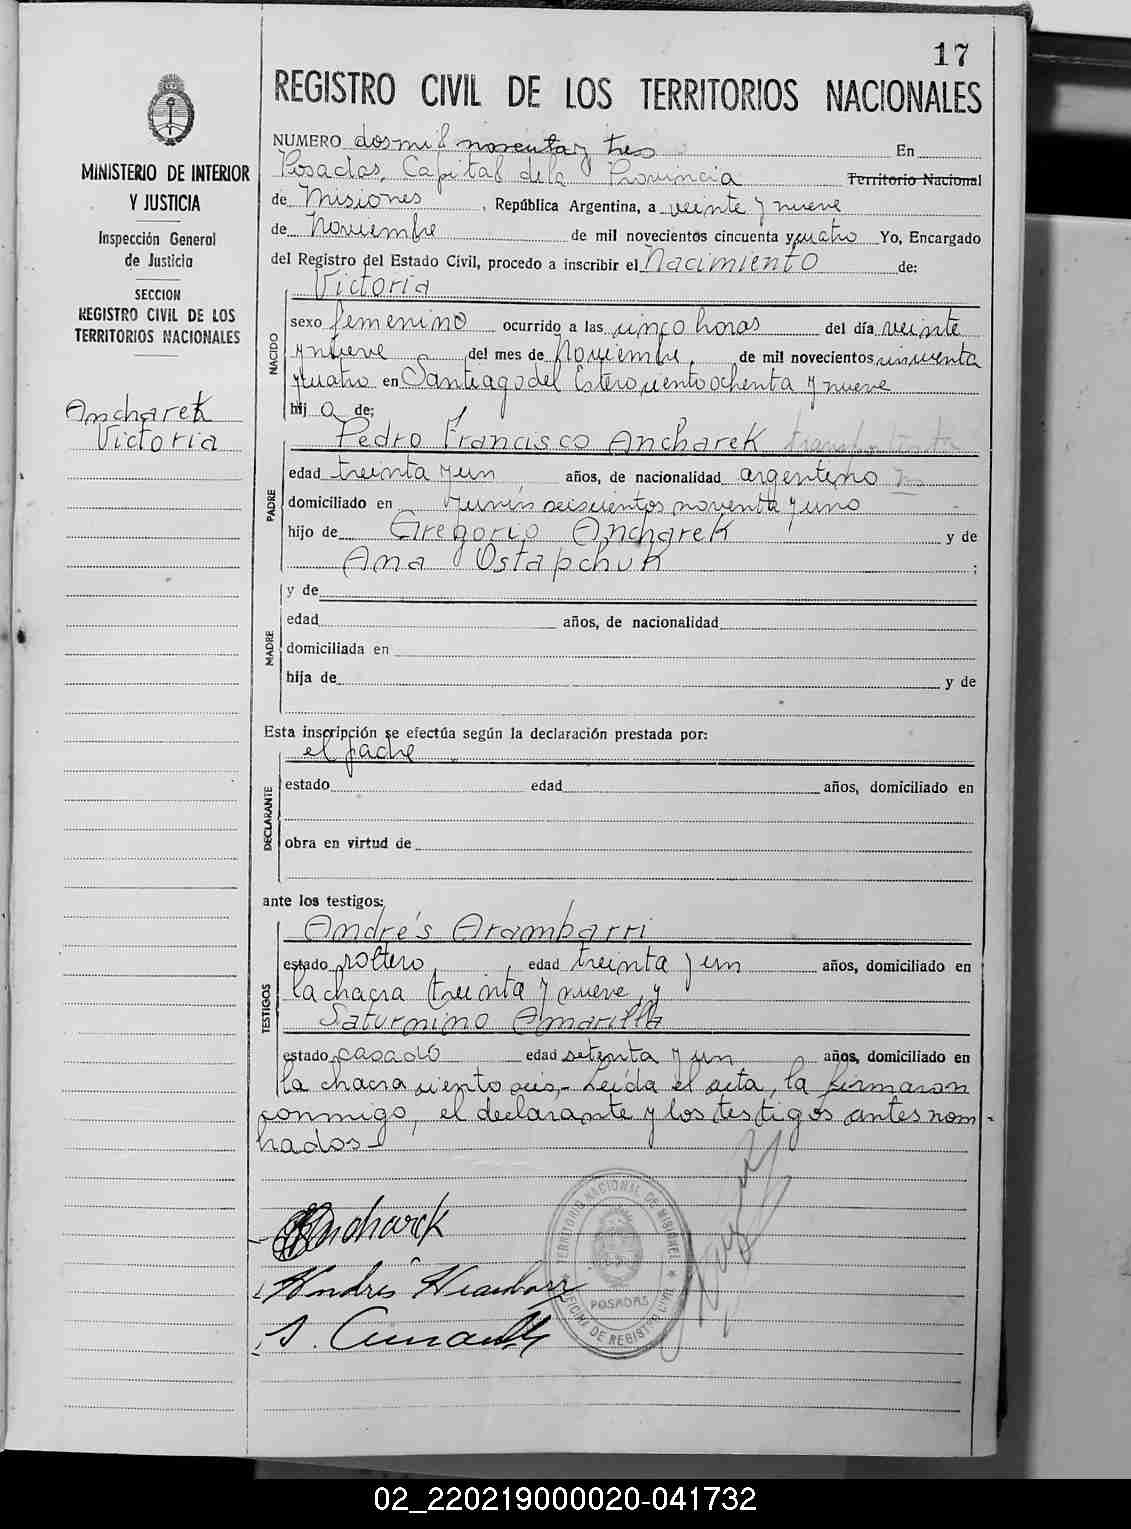 17
REGISTRO CIVIL DE LOS TERRITORIOS NACIONALES
MINISTERIO DE INTERIOR
Y JUSTICIA
Inspección General
de Justicia
SECCION
REGISTRO CIVIL DE LOS
TERRITORIOS NACIONALES
Ancharek
Victoria
NUMERO dos mil noventa y tres En
Posadas, Capital de la Provincia Territorio Nacional
de Misiones, República Argentina, a veinte y nueve
de Noviembre de mil novecientos cincuenta y cuatro Yo, Encargado
del Registro del Estado Civil, procedo a inscribir el Nacimiento de:
Victoria
NACIDO
sexo femenino ocurrido a las cinco horas del día veinte
y nueve del mes de Noviembre, de mil novecientos cincuenta
y cuatro en Santiago del Estero ciento ochenta y nueve
hij a de:
Pedro Francisco Ancharek
PADRE
edad treinta y un años, de nacionalidad argentino
domiciliado en Junín seiscientos noventa y uno
hijo de Gregorio Ancharek y de
Ana Ostapchuk ;
MADRE
y de
edad años, de nacionalidad
domiciliada en
hija de y de
Esta inscripción se efectúa según la declaración prestada por:
el padre
DECLARANTE
estado edad años, domiciliado en
obra en virtud de
ante los testigos:
Andrés Arambarri
TESTIGOS
estado soltero, edad treinta y un años, domiciliado en
la chacra treinta y nueve, y
Saturnino Amarilla
estado casado edad setenta y un años, domiciliado en
la chacra ciento seis,- Leída el acta, la firmaron
conmigo, el declarante y los testigos antes nom-
brados-
Ancharek
Andrés Arambarri
S. Amarilla
TERRITORIO NACIONAL DE MISIONES
POSADAS
OFICINA DE REGISTRO CIVIL
02_220219000020-041732